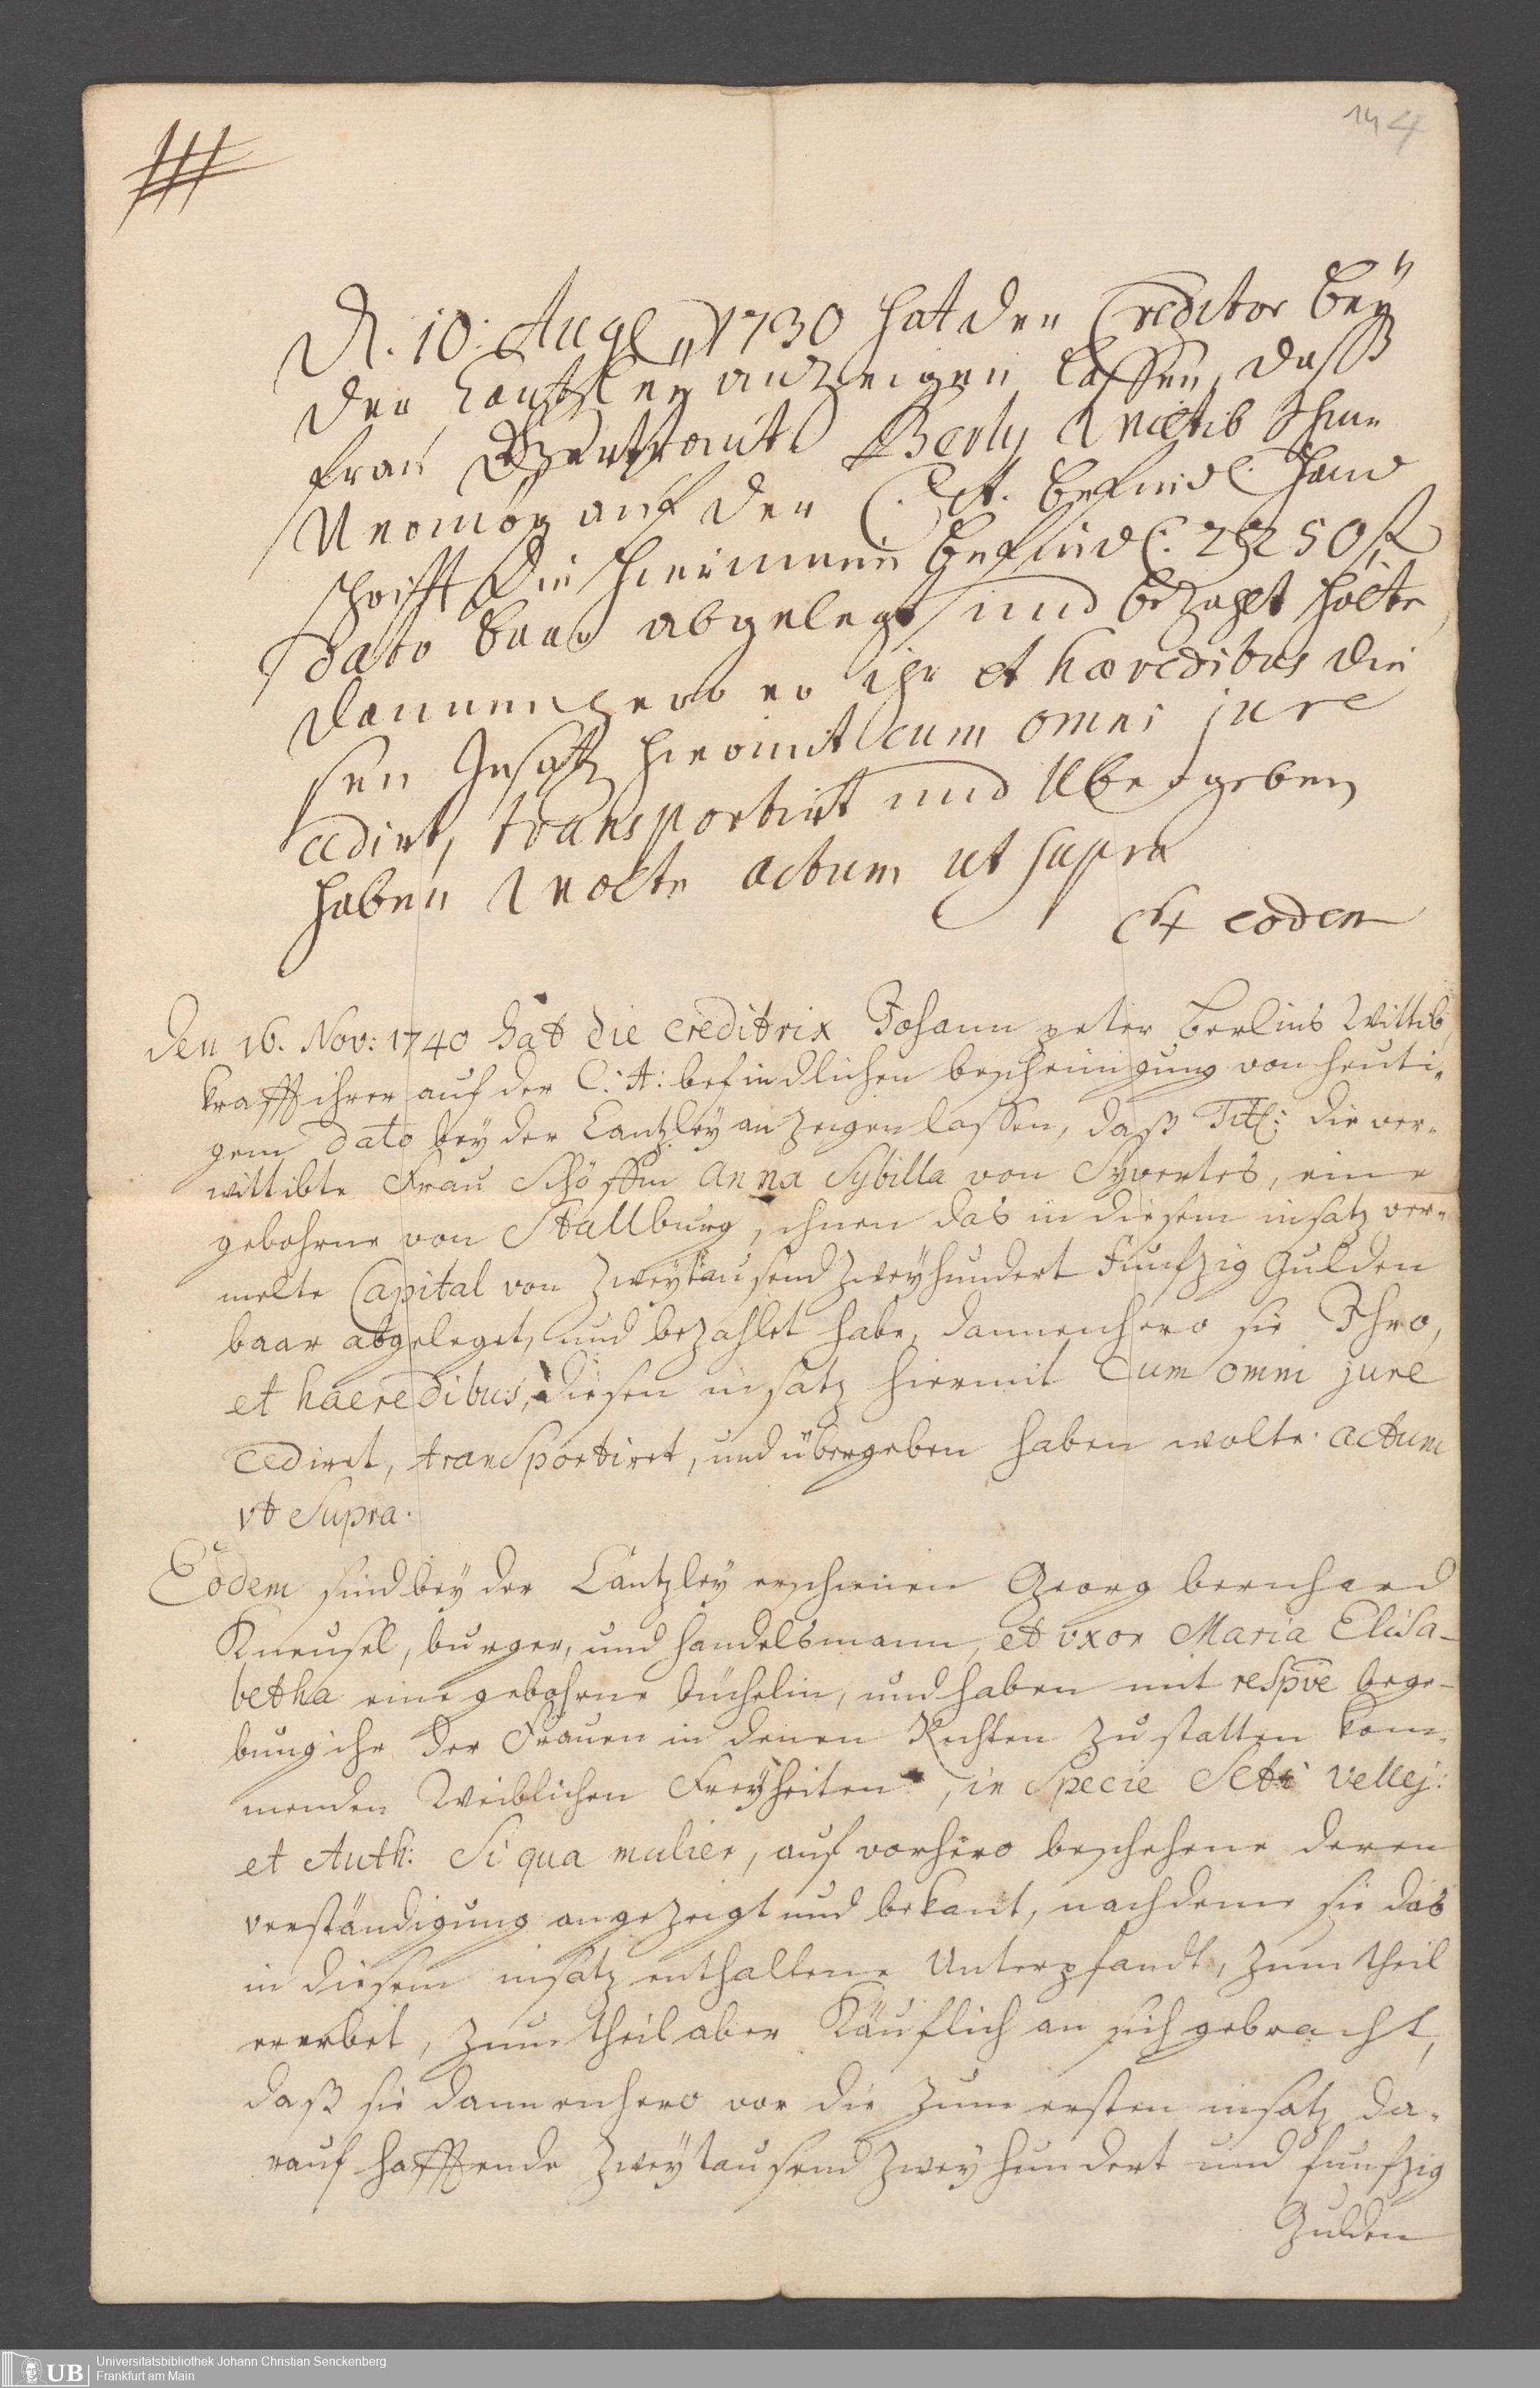 144
D. 10. Aug. 1730 hat der Creditor bey
der Cantzley anzeigen lassen, daß
Frau Berly Wittib Ihme
Vermög auf der C. A. befindl. Hand
schrifft die hierinnen befindl. 2250 f
dato baar abgelegt und bezahlt hätte
dannenhero er ihr et haeredibus die
sen Insatz hiermit cum omni jure
cedirt, transportirt und Übergeben
haben wolte actum ut supra
eodem
Den 16. Nov: 1740 hat die Creditrix Johann peter Berlins Wittib,
krafft ihrer auf der C: A: befindlichen bescheinigung von heuti-
gem dato bey der Cantzley anzeigen lassen, daß Titl: die ver-
wittibte Frau Schöffin Anna Sybilla von Syvertes, eine
gebohrne von Stallburg, ihnen das in diesem insatz ver-
melte Capital von Zweytausend Zweyhundert Funfzig Gulden
baar abgeleget, und bezahlet habe, dannenhero sie Ihro,
et haeredibus, diesen insatz hiermit cum omni jure
cediret, transportiret, und übergeben haben wolte. actum
vt Supra.
Eodem sind bey der Cantzley erschienen Georg bernhard
Kneusel, burger, und handelsmann, et vxor Maria Elisa-
betha eine gebohrne büchelin, und haben mit respve bege-
bung ihr der Frauen in denen Rechten zu statten kom-
menden Weiblichen Freyheiten, in Specie Scti Vellej:
et Auth: Si qua mulier, auf vorhero beschehene deren
verständigung angezeigt und bekant, nachdeme sie das
in diesem insatz enthaltene Unterpfandt, zum theil
ererbet, zum theil aber Käuflich an sich gebracht,
daß sie dannenhero vor die zum ersten insatz da-
rauf hafftende Zweytausend Zweyhundert und funfzig
Gulden
UB
Universitätsbibliothek Johann Christian Senckenberg
Frankfurt am Main